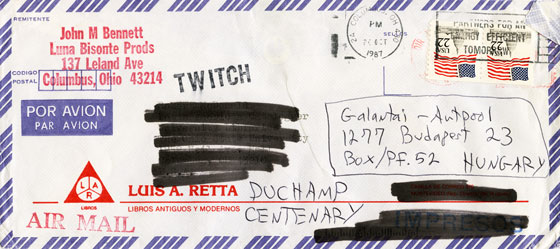 REMITENTE
John M Bennett
Luna Bisonte Prods
137 Leland Ave
Columbus, Ohio 43214
CODIGO
POSTAL
TWITCH
SELOS
PM
OCT
1987
PARTNERS FOR AN
ENERGY EFFICIENT
TOMORROW
22
22
POR AVION
PAR AVION
Galantai - Artpool
1277 Budapest 23
Box/Pf. 52 HUNGARY
LAR
LIBROS
LUIS A. RETTA
LIBROS ANTIGUOS Y MODERNOS
DUCHAMP
CENTENARY
AIR MAIL
IMPRESOS